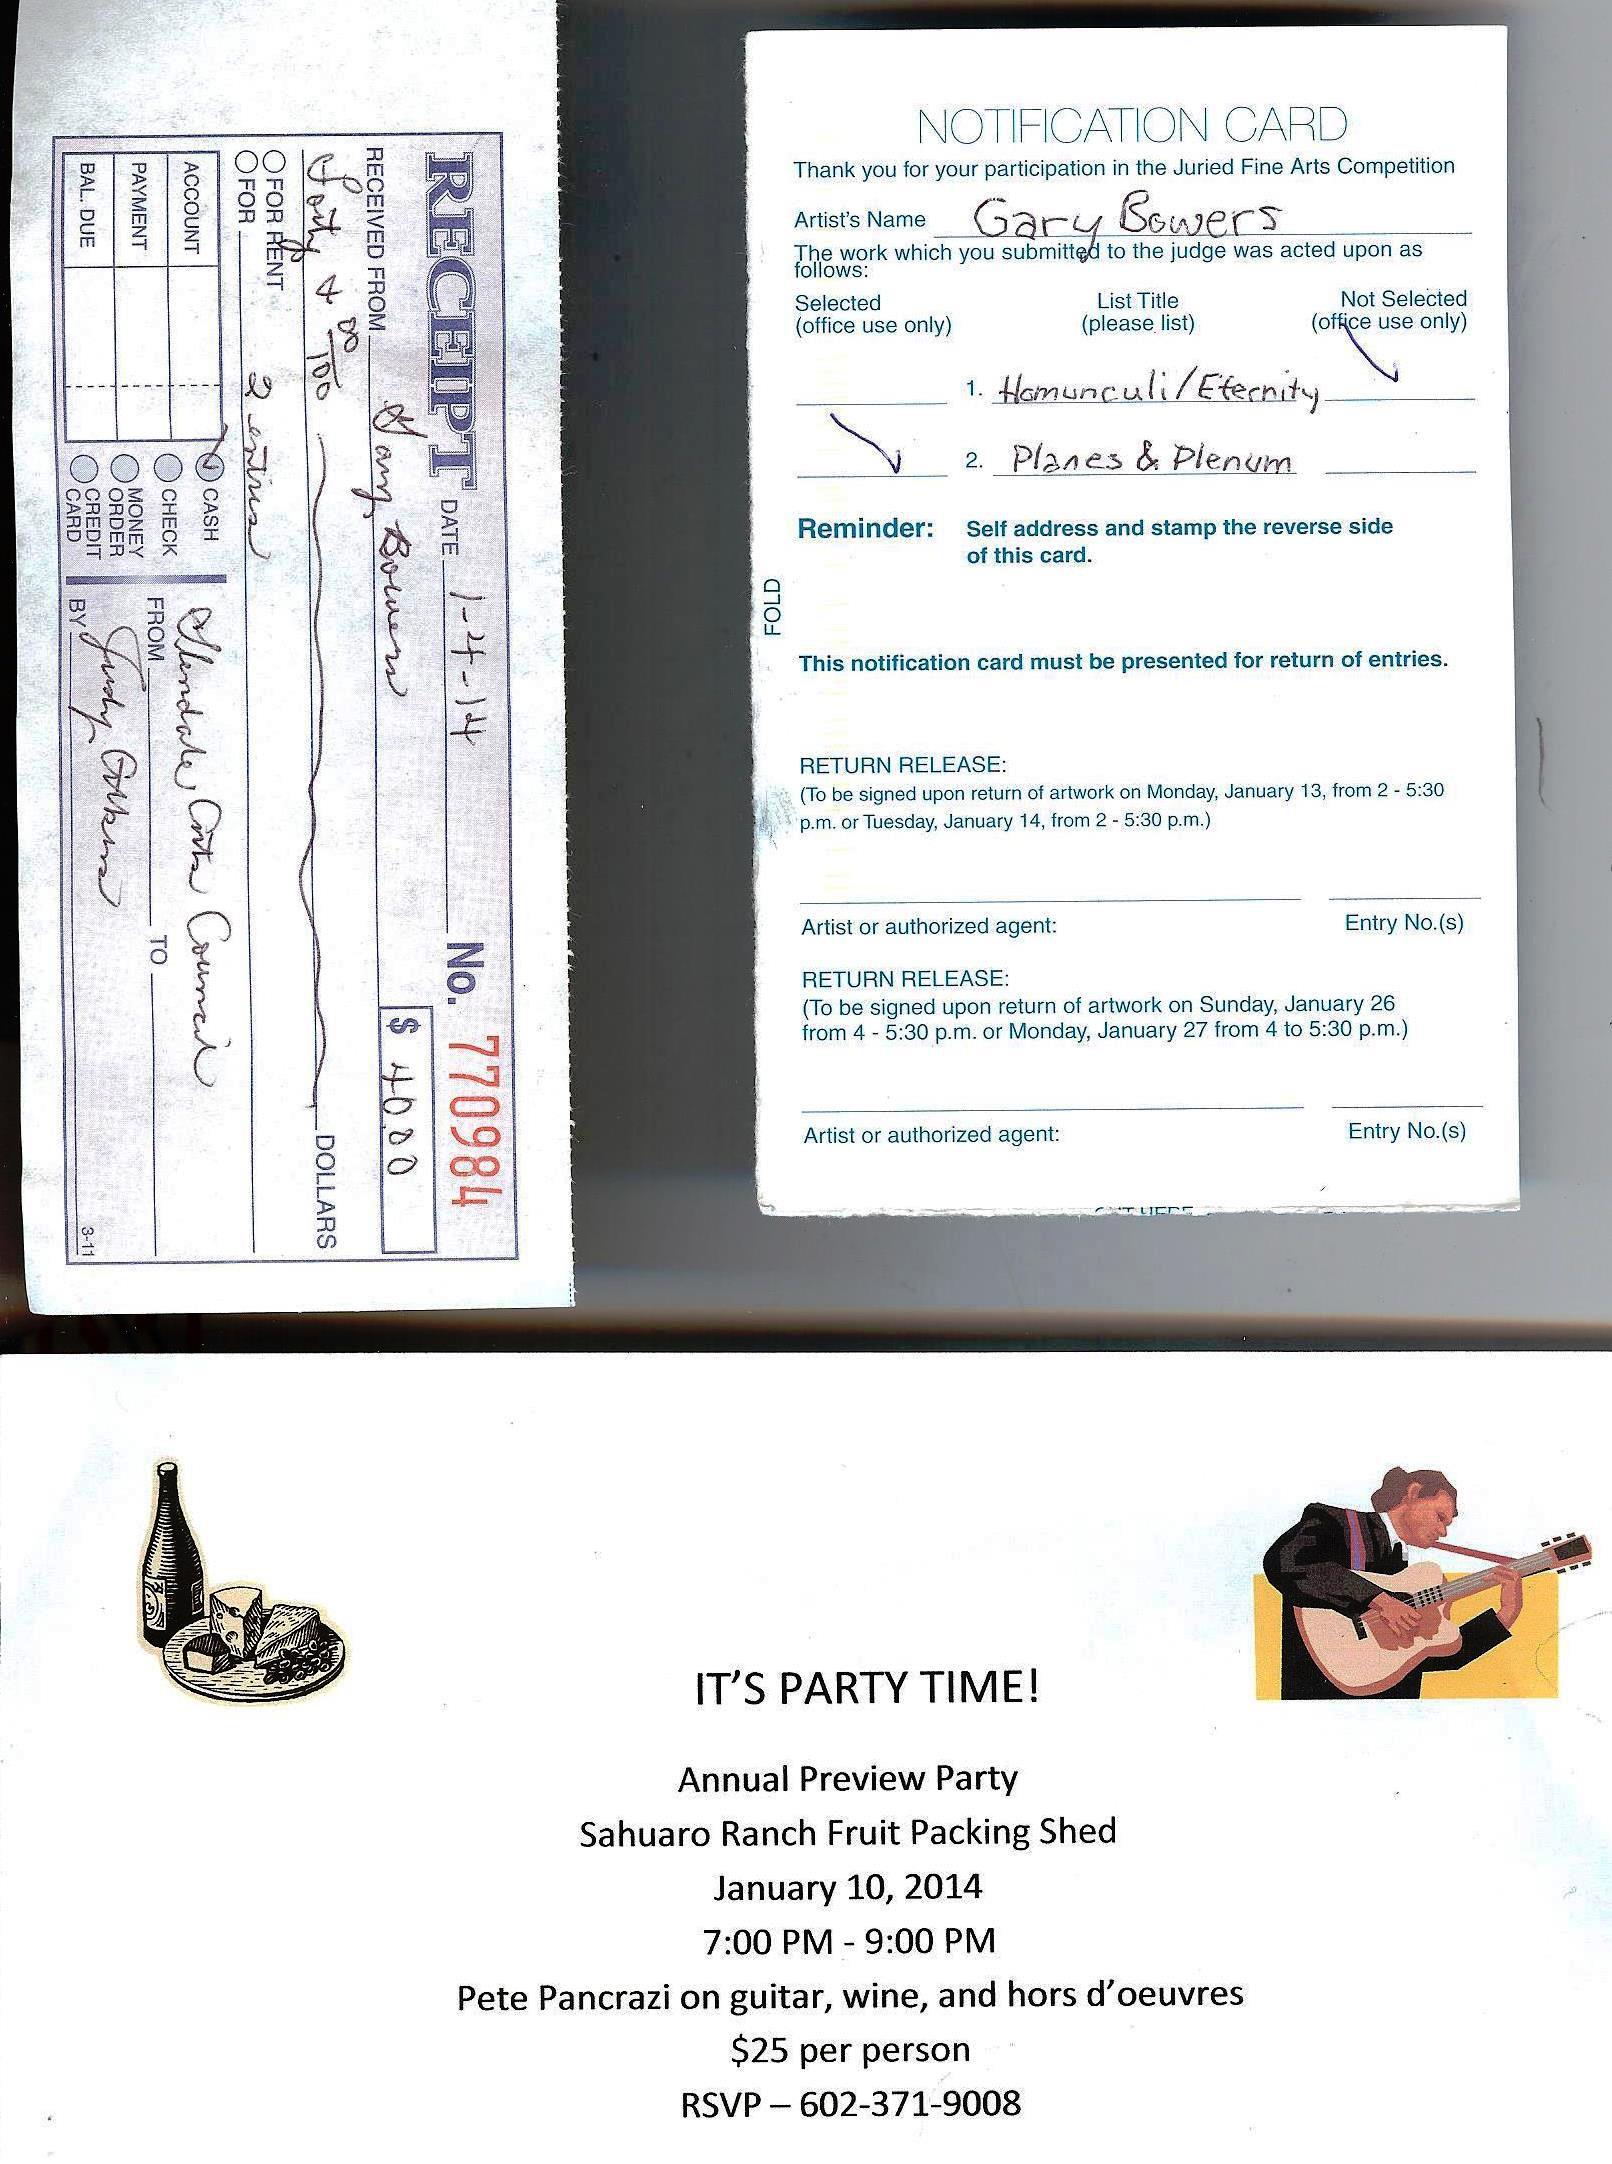 RECEIPT DATE 1-4-14 No. 770984
RECEIVED FROM Gary Bowers $ 40.00
Forty & 00/100 DOLLARS
FOR RENT
FOR 2 entries
ACCOUNT CASH
PAYMENT CHECK
BAL. DUE MONEY ORDER
CREDIT CARD
Glendale Arts Council
FROM TO
BY Judy
3-11
NOTIFICATION CARD
Thank you for your participation in the Juried Fine Arts Competition
Artist's Name Gary Bowers
The work which you submitted to the judge was acted upon as
follows:
Selected List Title Not Selected
(office use only) (please list) (office use only)
1. Homunculi/Eternity
2. Planes & Plenum
Reminder: Self address and stamp the reverse side
of this card.
FOLD
This notification card must be presented for return of entries.
RETURN RELEASE:
(To be signed upon return of artwork on Monday, January 13, from 2 - 5:30
p.m. or Tuesday, January 14, from 2 - 5:30 p.m.)
Artist or authorized agent: Entry No.(s)
RETURN RELEASE:
(To be signed upon return of artwork on Sunday, January 26
from 4 - 5:30 p.m. or Monday, January 27 from 4 to 5:30 p.m.)
Artist or authorized agent: Entry No.(s)
IT'S PARTY TIME!
Annual Preview Party
Sahuaro Ranch Fruit Packing Shed
January 10, 2014
7:00 PM - 9:00 PM
Pete Pancrazi on guitar, wine, and hors d'oeuvres
$25 per person
RSVP – 602-371-9008